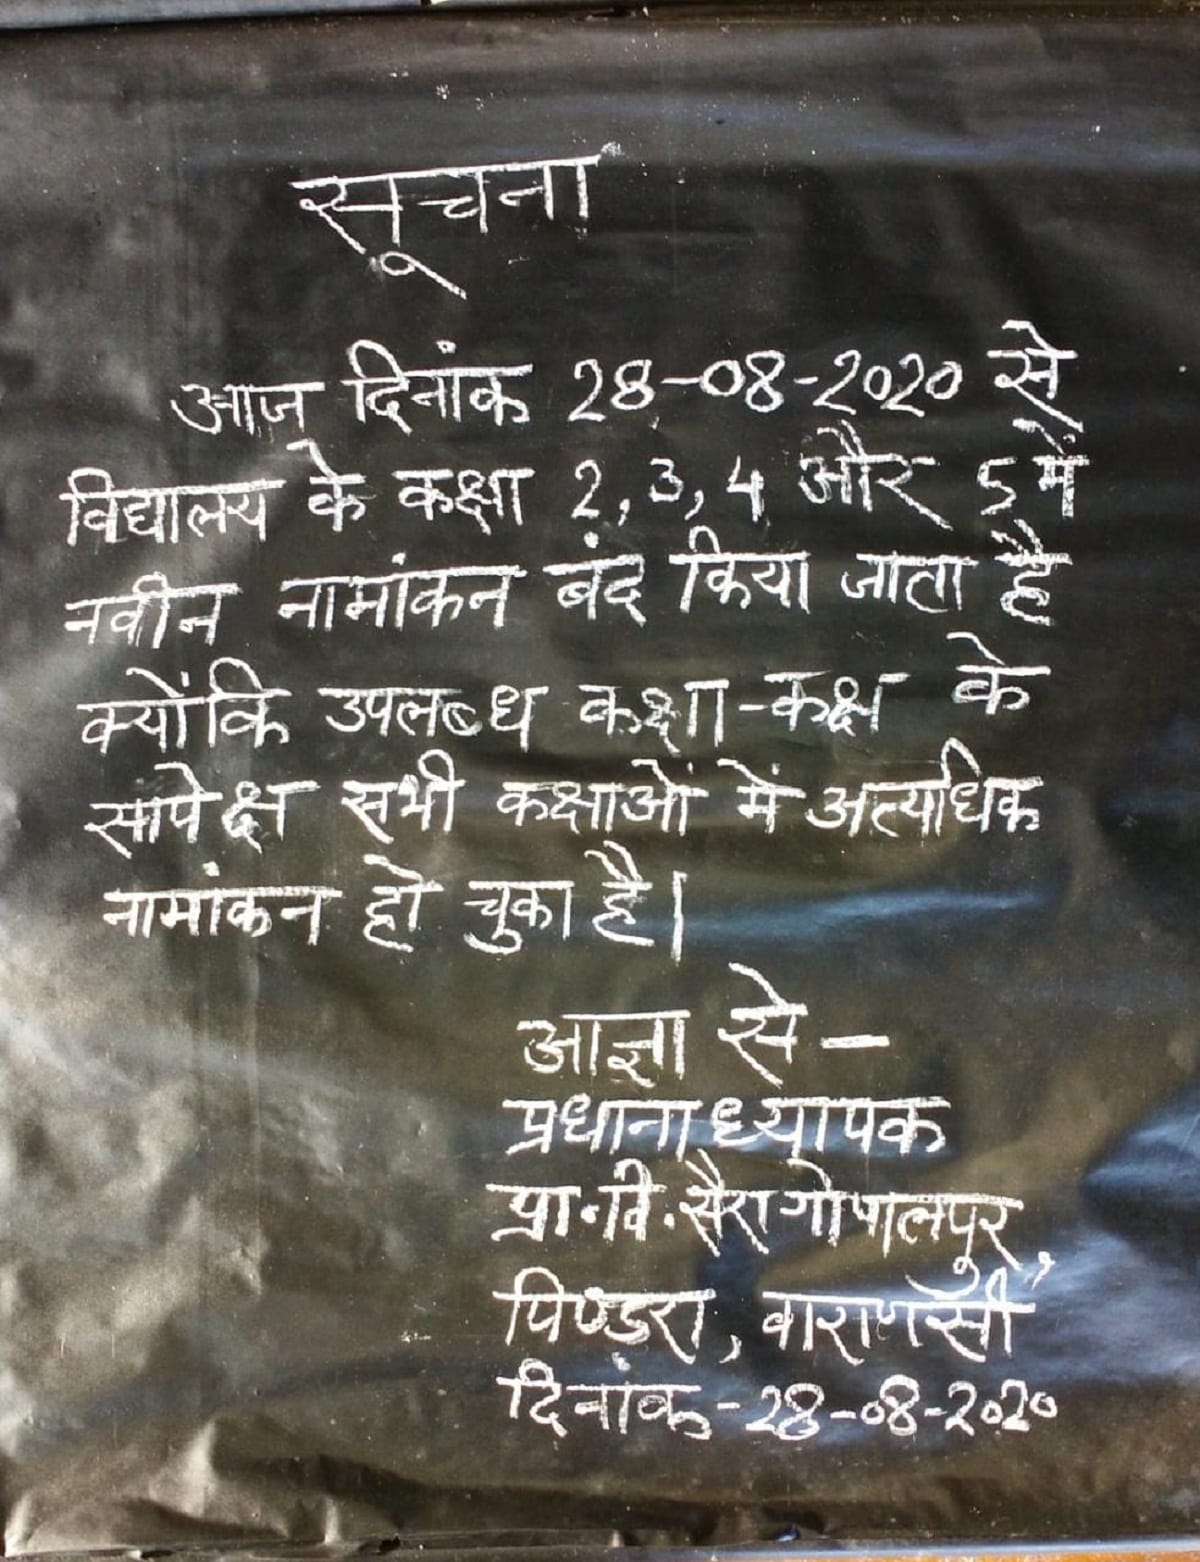 सूचना
आज दिनांक 28-08-2020 से
विद्यालय के कक्षा 2,3,4 और 5 में
नवीन नामांकन बंद किया जाता है
क्योंकि उपलब्ध कक्षा-कक्ष के
सापेक्ष सभी कक्षाओं में अत्यधिक
नामांकन हो चुका है।
आज्ञा से -
प्रधानाध्यापक
प्रा.वि.सैरागोपालपुर,
पिण्डरा, वाराणसी
दिनांक-28-08-2020